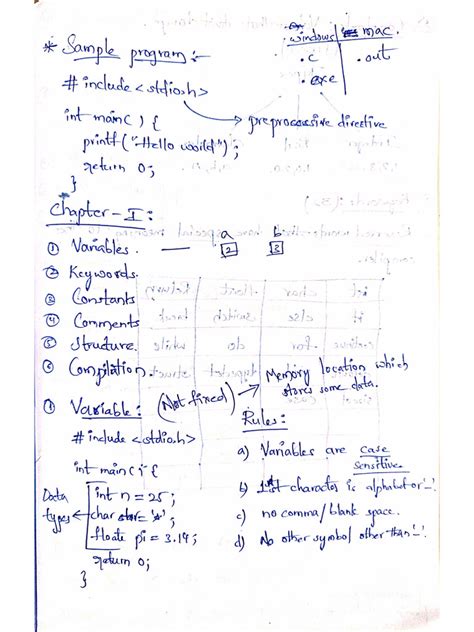 windows | mac.
.c | .out
.exe
* Sample program :-
# include <stdio.h>
→ preprocessive directive
int main() {
printf("Hello world");
return 0;
}
Chapter - I :
① Variables. — a 2 b 3
② Keywords.
③ Constants
④ Comments
⑤ Structure.
⑥ Compilation.
① Variable : (Not fixed) → Memory location which stores some data.
# include <stdio.h>
int main() {
Data types
int n = 25;
char star = '*';
floate pi = 3.14;
return 0;
}
Rules :
a) Variables are case sensitive.
b) 1st character is alphabet or '_'.
c) no comma/blank space.
d) No other symbol other than '_'.